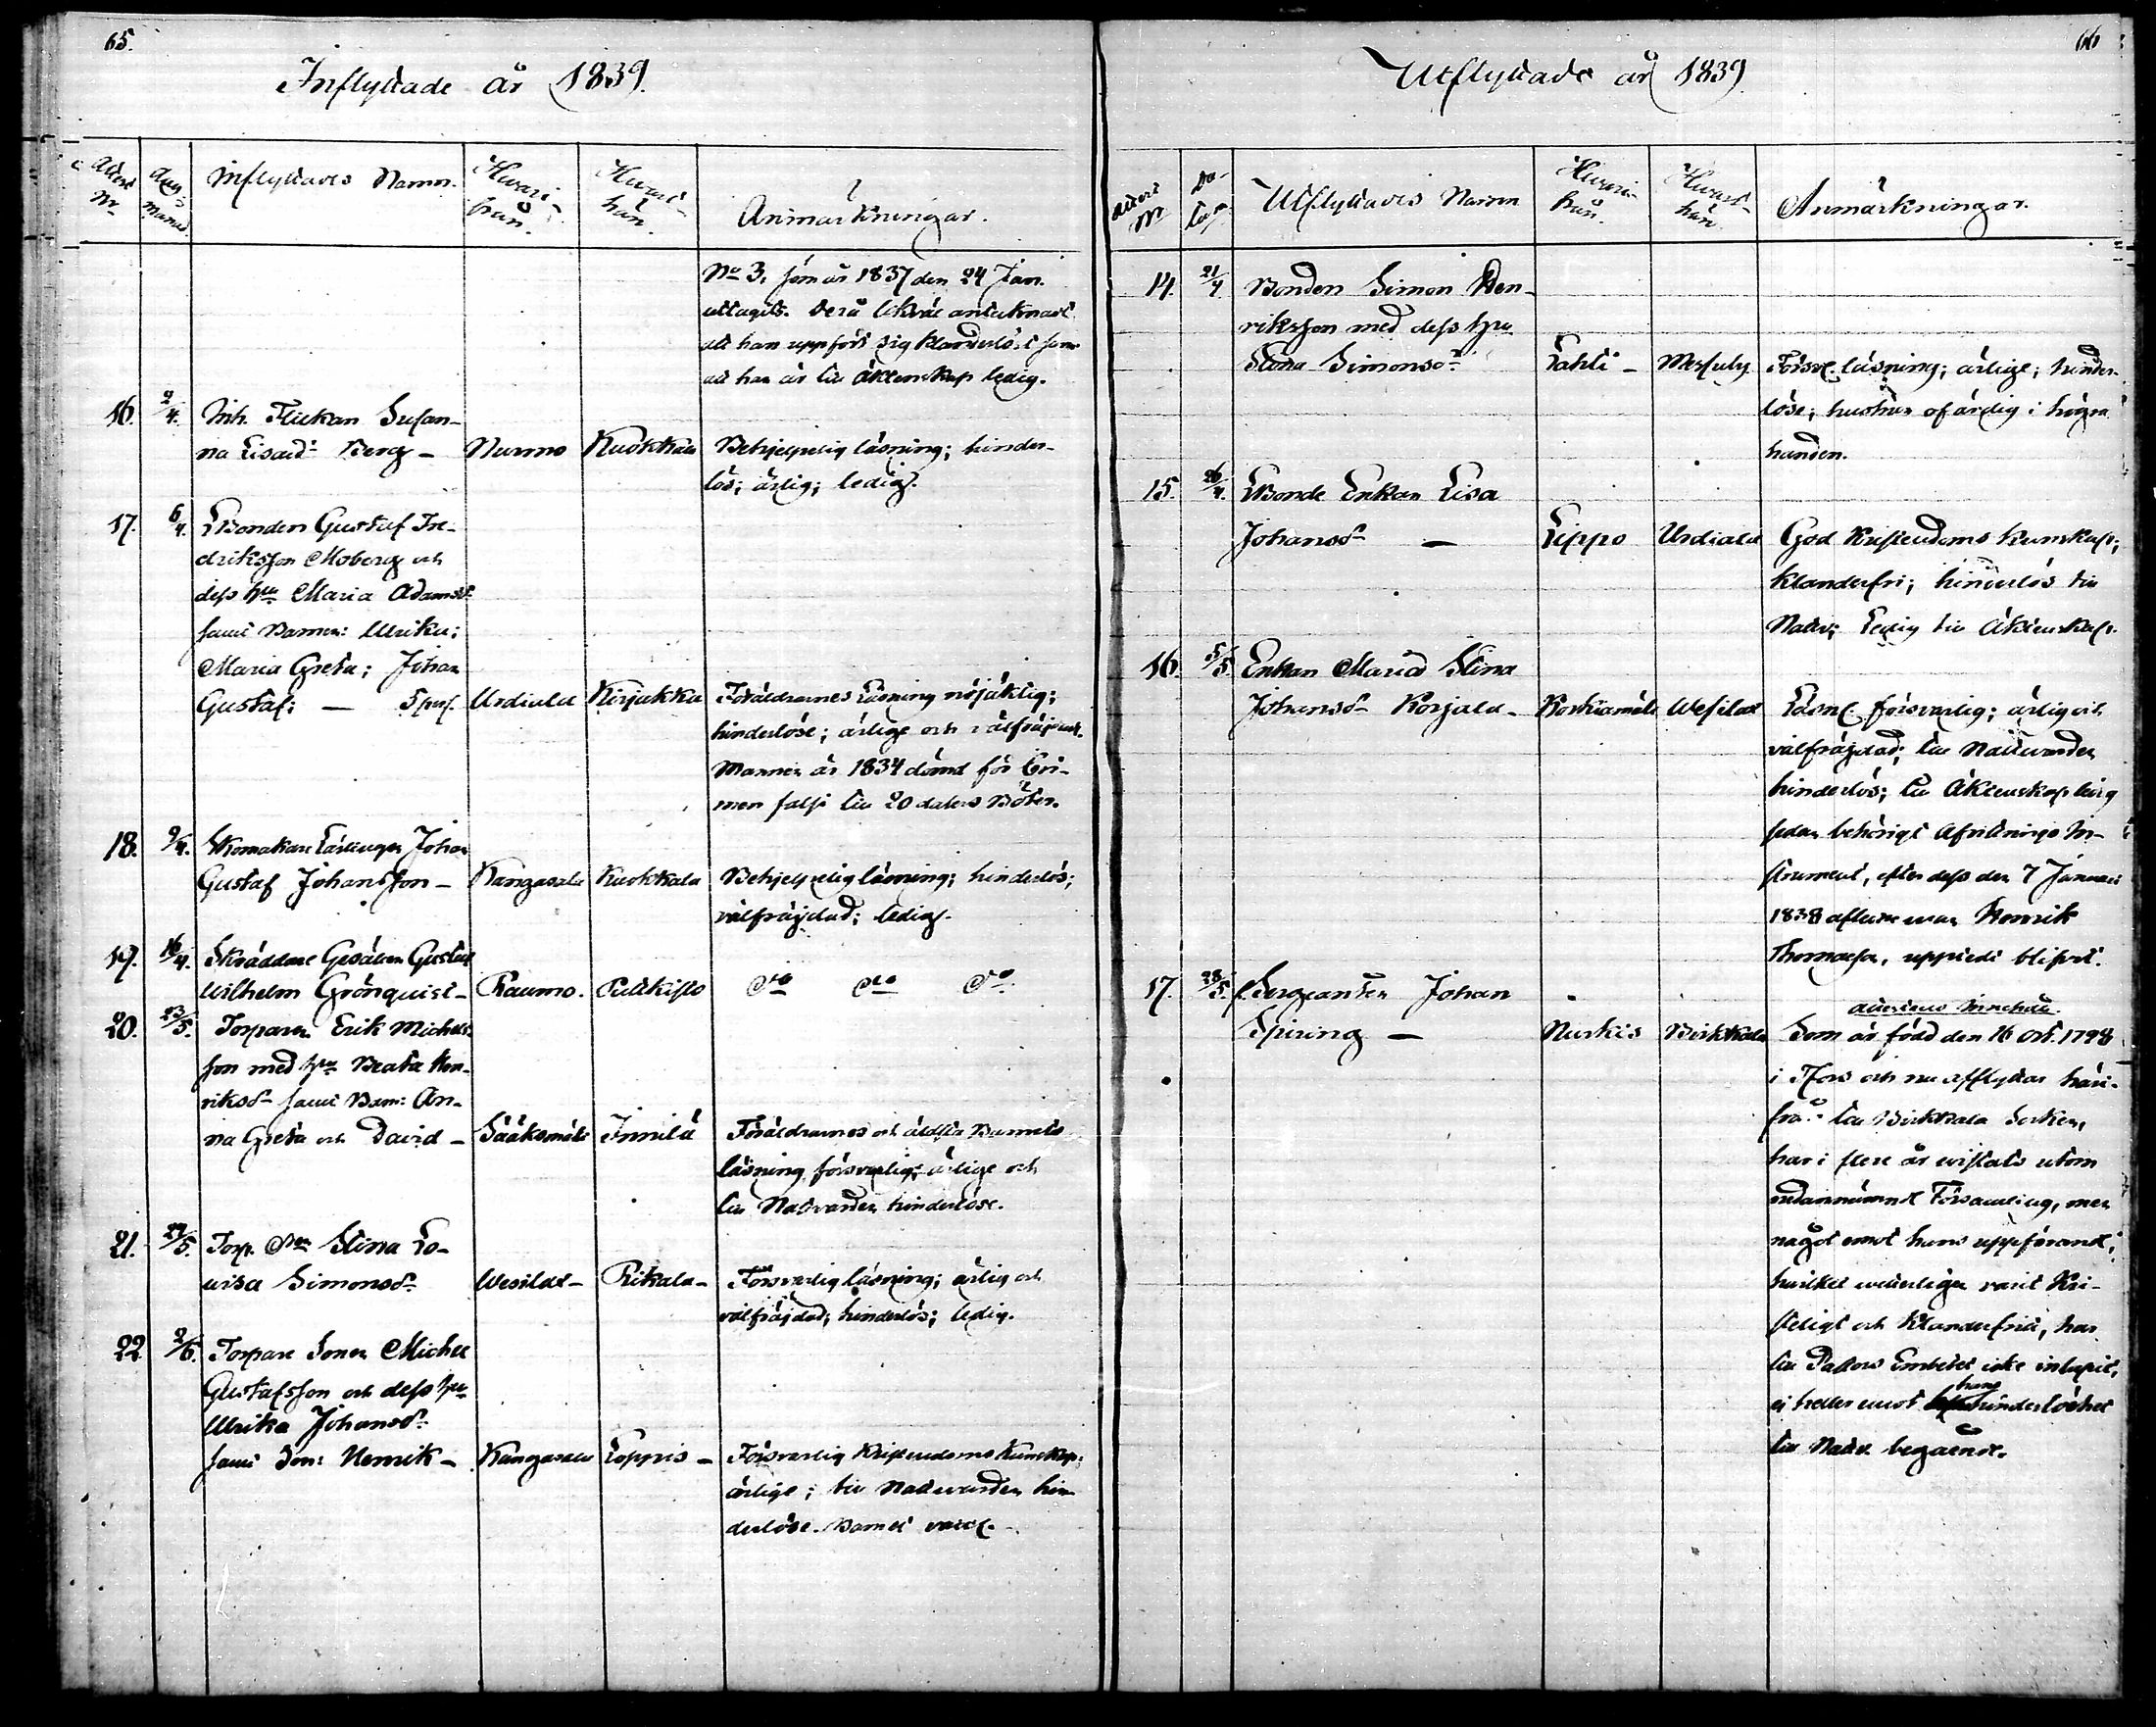 65.
Inflyttade år 1839.
Attest
No
Dag
Månad.
Inflyttades Namn.
Hvari-
från.
Hvart-
hän.
Anmärkningar.
No 3, som år 1837 den 24 Jan.
uttagits. Derå likväl antecknadt
att han uppfört sig klanderlöst samt
att han är till Äktenskap ledig.
16. 2/4. Inh. Flickan Susan-
na Lisad. Berg - Nurmo Kuokkala Behjelpelig läsning; hinder-
lös; ärlig; ledig.
17. 6/4. Bonden Gustaf Fre-
driksson Moberg och
dess hu Maria Adamsd.
samt Barnen: Ulrika;
Maria Greta; Johan
Gustaf; — 5 pers. Urdiala Kirjakka Föräldrarnes Läsning nöjaktig;
hinderlöse; ärlige och välfräjdade.
Mannen år 1834 dömd för Cri-
men falsi till 20 dalers Böter.
18. 9/4. Skomakare Lärlingen Johan
Gustaf Johansson - Kangasala Kuokkala Behjelpelig läsning; hinderlös;
välfräjdad; ledig.
19. 16/4. Skräddare Gesällen Gustaf
Wilhelm Grönquist - Raumo. Pultkisto do do do
20. 23/5. Torparen Erik Michels-
son med hu Beata Hen-
riksd. samt Barn: An-
na Greta och David - Sääksmäki Innilä Föräldrarnes och äldsta Barnets
läsning försvarlig; ärlige och
till Nattvarden hinderlöse.
21. 29/5. Torp. Stina Lo-
visa Simonsd. Wesilax - Rikala - Försvarlig läsning; ärlig och
välfräjdad; hinderlös; ledig.
22. 2/6. Torpare Sonen Michel
Gustafsson och dess hu
Ulrika Johansd.
samt Son: Henrik - Kangasala Loppis - Försvarlig Kristendoms Kunskap;
ärlige; till Nattvarden hin-
derlöse. Barnet vacc.
66
Utflyttade år 1839.
Attest
No
Da-
tum
Utflyttades Namn
Hvari-
från.
Hvart-
hän
Anmärkningar.
14. 21/4. Bonden Simon Hen-
riksson med dess hu
Stina Simonsd. Lahti - Messuby Försv. läsning; ärlige; hinder-
löse; hustrun ofärdig i högra
handen.
15. 26/4. Bonde Enkan Lisa
Johansd. — Lippo Urdiala God Kristendoms Kunskap;
klanderfri; hinderlös till
Nattv; Ledig till Äktenskap.
16. 5/5. Enkan Maria Stina
Johansd. Korjala - Koskiamäki Wesilax Läsn. försvarlig; ärlig och
välfräjdad; till Nattvarden
hinderlös; till Äktenskap ledig
sedan behörigt Afvittrings In-
strument, efter dess den 7 Januari
1838 aflidne man Henrik
Thomasson, uppvisdt blifvit.
17. 28/5. Sergeanten Johan
Spiring — Nurkis Birkkala
Attestens Innehåll.
Som är född den 16 Oct. 1798
i Tfors och nu afflyttar häri-
från till Birkkala Socken,
har i flere år vistats utom
ofvannämnde Församling, men
något emot hans uppförande,
hvilket ytterligen varit kri-
steligt och klanderfria, har
till Pastors Embetet icke inlupit,
ej heller emot hans hinderlöshet
till Nattv. begående.